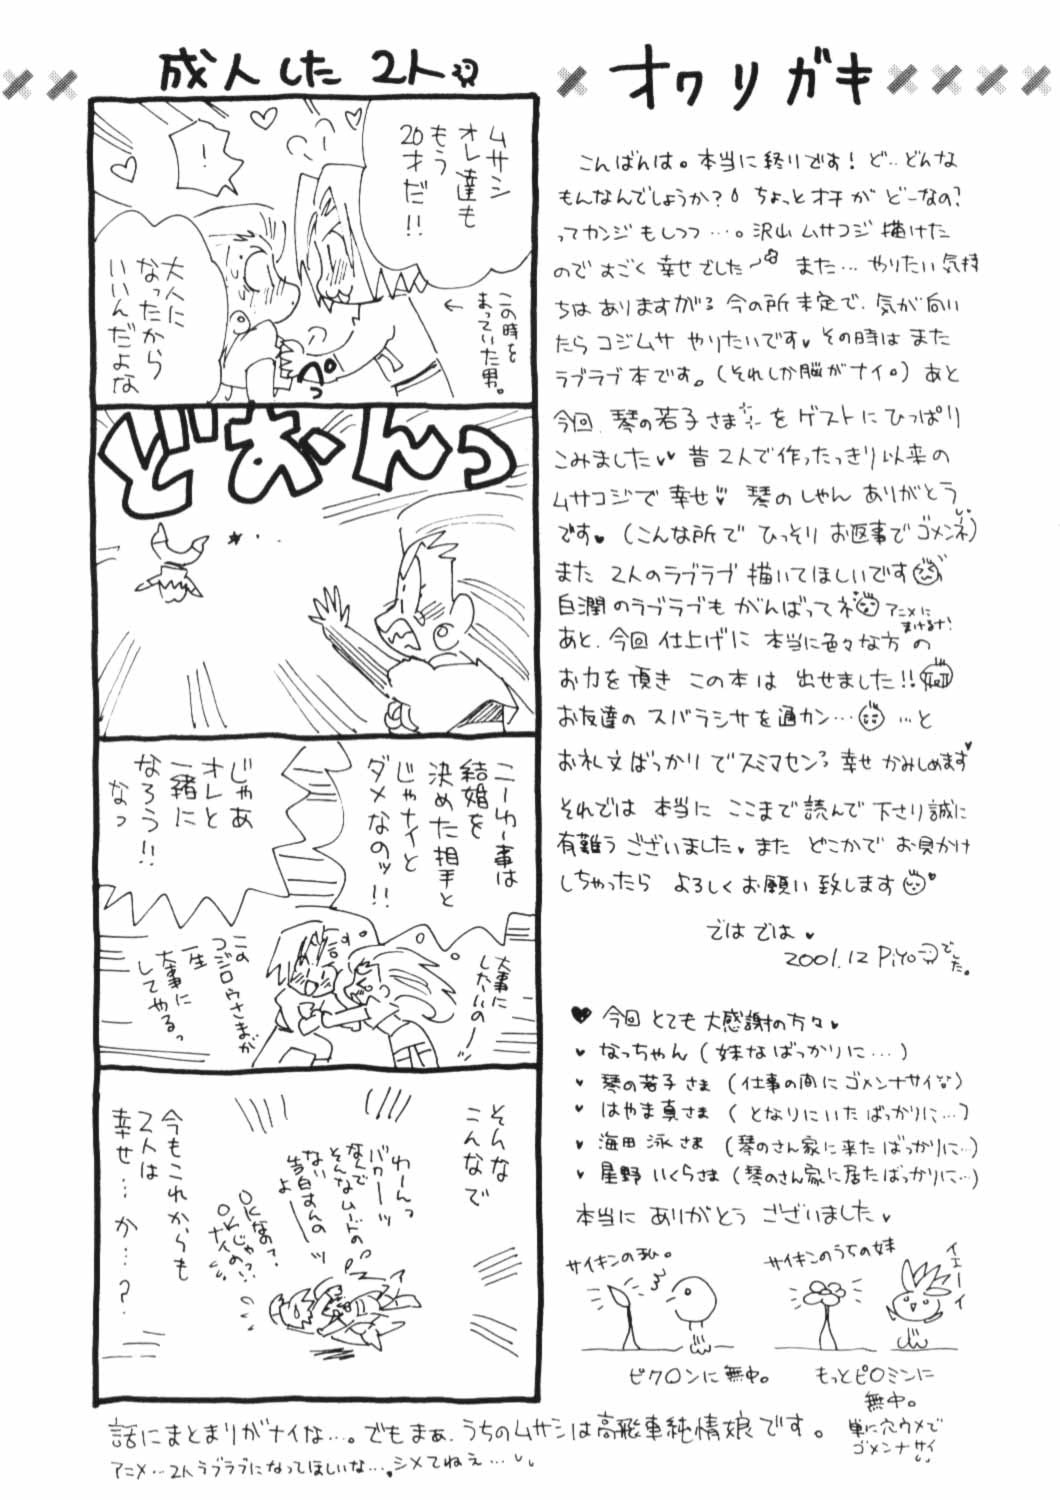 オワリガキ
こんばんは。本当に終りです！ど‥どんな
もんなんでしょうか？ちょっとオチがどーなの？
ってカンジもしつつ…。沢山ムサコジ描けた
のですごく幸せでした〜 また…やりたい気持
ちはありますがろ今の所未定で、気が向い
たらコジムサやりたいです♥その時はまた
ラブラブ本です。(それしか脳がナイ。)あと
今回、琴の若子さまをゲストにひっぱり
こみました♥♥昔2人で作ったっきり以来の
ムサコジで幸せ♥琴のしゃんありがとう
です♥(こんな所でひっそりお返事でゴメンネ)
また2人のラブラブ描いてほしいです
白潤のラブラブもがんばってネ アニメに
まけるな！
あと、今回仕上げに本当に色々な方の
お力を頂きこの本は出せました!!
お友達のスバラシサを通カン… …と
お礼文ばっかりでスミマセンろ幸せかみしめます♥
それでは本当にここまで読んで下さり誠に
有難うございました♥またどこかでお見かけ
しちゃったらよろしくお願い致します
ではでは♥
2001.12 Piyoでした。
♥今回とても大感謝の方々♥
♥なっちゃん(妹なばっかりに…)
♥琴の若子さま(仕事の間にゴメンナサイ)
♥はやま真さま(となりにいたばっかりに…)
♥海田泳さま(琴のさん家に来たばっかりに…)
♥星野いくらさま(琴のさん家に居たばっかりに…)
本当にありがとうございました♥
サイキンの私。
ピクロンに無中。
サイキンのうちの妹
イエーイ
もっとピ○ミンに
無中。
単に穴ウメで
ゴメンナサイ
成人した2人
ムサシ
オレ達も
もう
20才だ!!
この時を
まっていた男。
←
！
大人に
なったから
いいんだよな
ぺっ
どおーんっ
こーゆー事は
結婚を
決めた相手と
じゃナイと
ダメなのッ!!
じゃあ
オレと
一緒に
なろう!!
なっ
大事に
したいのー
この
コジロウさまが
一生
大事に
してやるっ
そんな
こんなで
わーんっ
バカーッ
なんで
そんなムードの
ない告白すんの
よーッ
OKなの？、
OKじゃ
ナイの!?
今もこれからも
2人は
幸せ…か…？
話にまとまりがナイな…。でもまぁ、うちのムサシは高飛車純情娘です。
アニメ…2人ラブラブになってほしいな…。シメてねぇ…